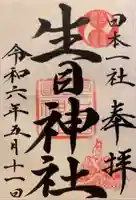 奉拝
日本一社
生目神社
令和六年五月十一日